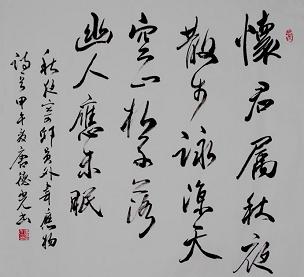 懷君屬秋夜
散步詠涼天
空山松子落
幽人應未眠
秋夜寄邱員外韋應物
詩 甲午夏唐德光書